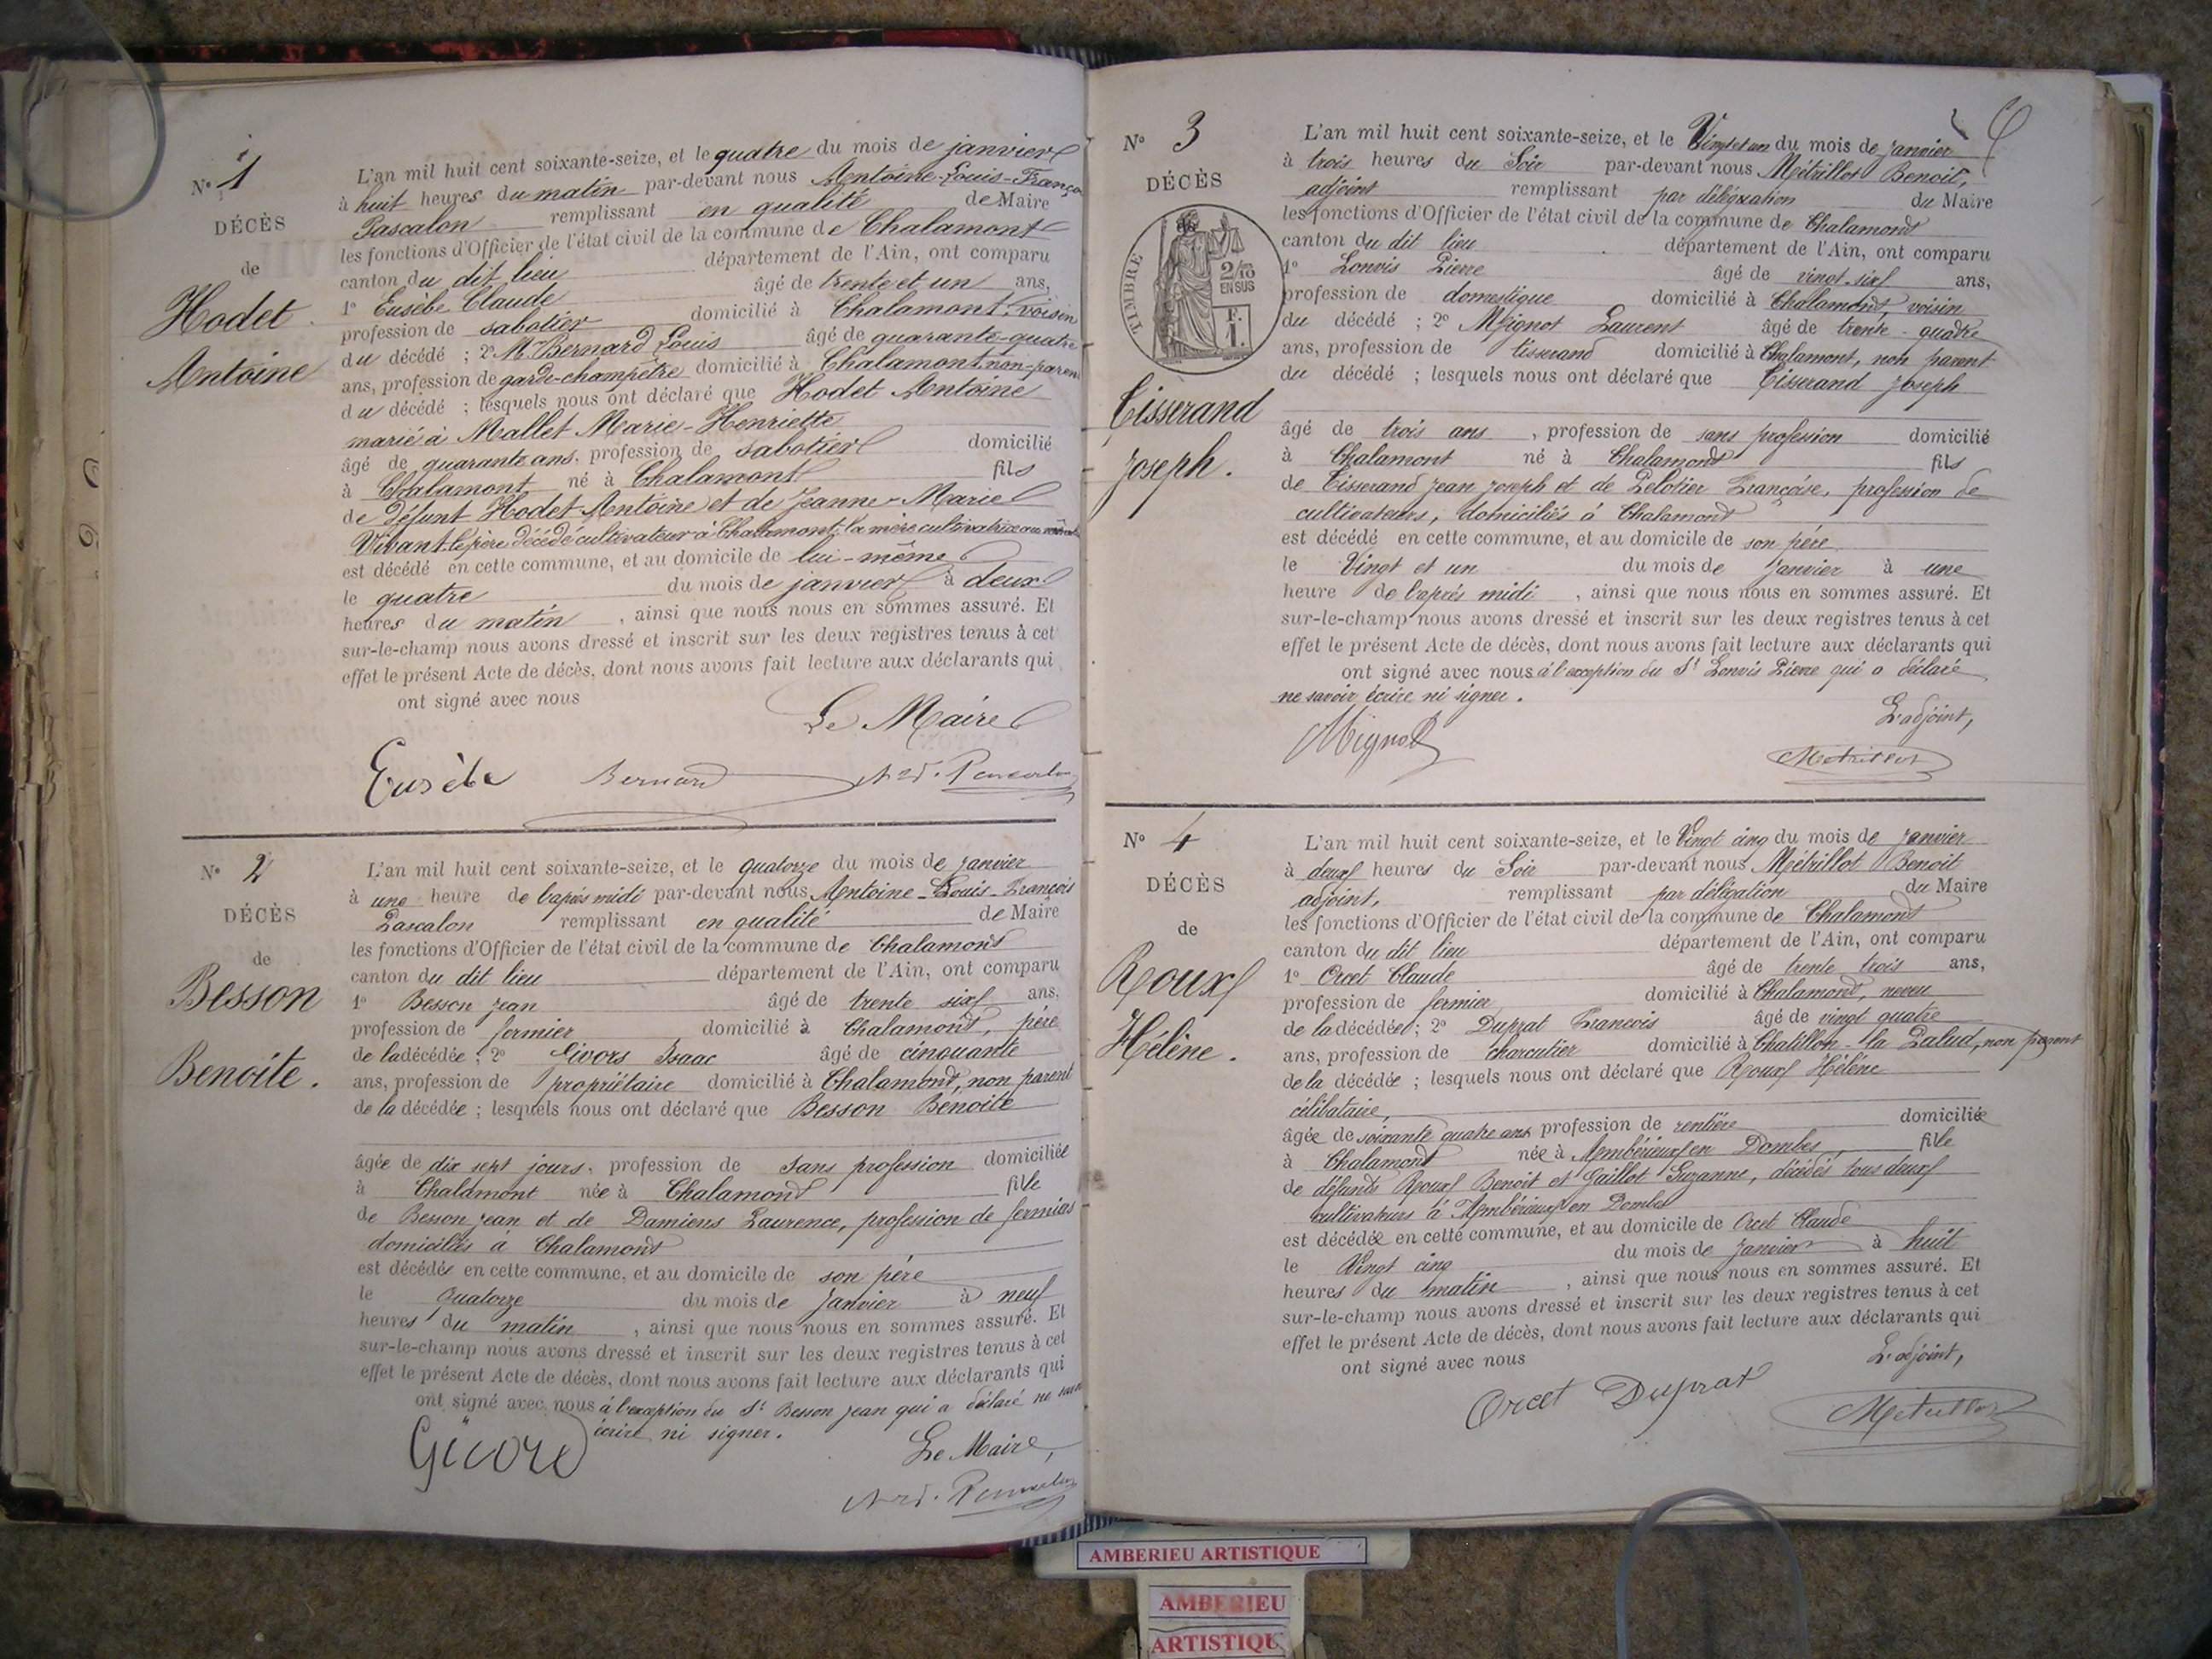 N° 1
DÉCÈS
de
Hodet
Antoine
L'an mil huit cent soixante-seize, et le quatre du mois de janvier
à huit heures du matin par-devant nous Antoine-Louis-Franço
Pascalon remplissant en qualité de Maire
les fonctions d'Officier de l'état civil de la commune de Chalamont
canton du dit lieu département de l'Ain, ont comparu
1° Eusèbe Claude âgé de trente et un ans,
profession de sabotier domicilié à Chalamont, voisin
du décédé ; 2° M. Bernard Louis âgé de quarante-quatre
ans, profession de garde-champêtre domicilié à Chalamont, non-paren
du décédé ; lesquels nous ont déclaré que Hodet Antoine
marié à Mallet Marie-Henriette
âgé de quarante ans, profession de sabotier domicilié
à Chalamont né à Chalamont fils
de défunt Hodet Antoine et de Jeanne-Marie
Vivant le père décédé cultivateur à Chalamont, la mère cultivatrice au
est décédé en cette commune, et au domicile de lui-même
le quatre du mois de janvier à deux
heures du matin , ainsi que nous nous en sommes assuré. Et
sur-le-champ nous avons dressé et inscrit sur les deux registres tenus à cet
effet le présent Acte de décès, dont nous avons fait lecture aux déclarants qui
ont signé avec nous
Le Maire
Eusèbe Bernard
N° 2
DÉCÈS
de
Besson
Benoite.
L'an mil huit cent soixante-seize, et le quatorze du mois de janvier
à une heure de l'après midi par-devant nous Antoine-Louis-François
Pascalon remplissant en qualité de Maire
les fonctions d'Officier de l'état civil de la commune de Chalamont
canton du dit lieu département de l'Ain, ont comparu
1° Besson Jean âgé de trente six ans,
profession de fermier domicilié à Chalamont, père
de la décédée ; 2° Givors Isaac âgé de cinquante
ans, profession de propriétaire domicilié à Chalamont, non parent
de la décédée ; lesquels nous ont déclaré que Besson Benoite
âgée de dix sept jours, profession de sans profession domiciliée
à Chalamont née à Chalamont fille
de Besson Jean et de Damiens Laurence, profession de fermiers
domiciliés à Chalamont
est décédée en cette commune, et au domicile de son père
le quatorze du mois de janvier à neuf
heures du matin , ainsi que nous nous en sommes assuré. Et
sur-le-champ nous avons dressé et inscrit sur les deux registres tenus à cet
effet le présent Acte de décès, dont nous avons fait lecture aux déclarants qui
ont signé avec nous à l'exception du Sr Besson Jean qui a déclaré ne
écrire ni signer.
Givors
Le Maire,
N° 3
DÉCÈS
TIMBRE
2/10
EN SUS
F.
1.
Tisserand
Joseph.
L'an mil huit cent soixante-seize, et le Vingt et un du mois de janvier
à trois heures du Soir par-devant nous Métrillot Benoit,
adjoint remplissant par délégation du Maire
les fonctions d'Officier de l'état civil de la commune de Chalamont
canton du dit lieu département de l'Ain, ont comparu
1° Lonvis Pierre âgé de vingt-six ans,
profession de domestique domicilié à Chalamont, voisin
du décédé ; 2° Mignot Laurent âgé de trente-quatre
ans, profession de tisserand domicilié à Chalamont, non parent
du décédé ; lesquels nous ont déclaré que Tisserand Joseph
âgé de trois ans , profession de sans profession domicilié
à Chalamont né à Chalamont fils
de Tisserand Jean Joseph et de Pelotier Françoise, profession de
cultivateurs, domiciliés à Chalamont
est décédé en cette commune, et au domicile de son père
le Vingt et un du mois de janvier à une
heure de l'après midi , ainsi que nous nous en sommes assuré. Et
sur-le-champ nous avons dressé et inscrit sur les deux registres tenus à cet
effet le présent Acte de décès, dont nous avons fait lecture aux déclarants qui
ont signé avec nous à l'exception du Sr Lonvis Pierre qui a déclaré
ne savoir écrire ni signer.
L'adjoint,
Mignot Métrillot
N° 4
DÉCÈS
de
Roux
Hélène.
L'an mil huit cent soixante-seize, et le Vingt cinq du mois de janvier
à deux heures du Soir par-devant nous Métrillot Benoit
adjoint, remplissant par délégation du Maire
les fonctions d'Officier de l'état civil de la commune de Chalamont
canton du dit lieu département de l'Ain, ont comparu
1° Orcet Claude âgé de trente trois ans,
profession de fermier domicilié à Chalamont, neveu
de la décédée ; 2° Duprat Francois âgé de vingt quatre
ans, profession de charcutier domicilié à Chatillon-la Palud, non parent
de la décédée ; lesquels nous ont déclaré que Roux Hélène
célibataire,
âgée de soixante quatre ans profession de rentière domiciliée
à Chalamont née à Ambérieux en Dombes, fille
de défunts Roux Benoit et Gaillot Suzanne, décédés tous deux
cultivateurs à Ambérieux en Dombes
est décédée en cette commune, et au domicile de Orcet Claude
le Vingt cinq du mois de janvier à huit
heures du matin , ainsi que nous nous en sommes assuré. Et
sur-le-champ nous avons dressé et inscrit sur les deux registres tenus à cet
effet le présent Acte de décès, dont nous avons fait lecture aux déclarants qui
ont signé avec nous
L'adjoint,
Orcet Duprat Métrillot
AMBERIEU ARTISTIQUE
AMBERIEU
ARTISTIQU